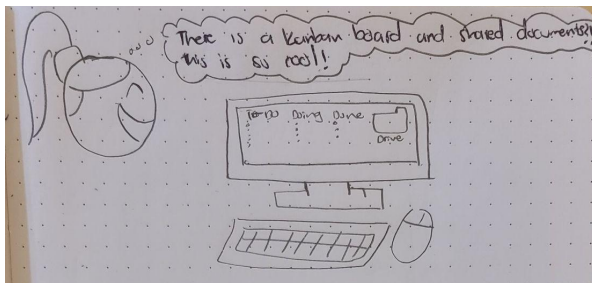 There is a Kanban board and shared documents!!
this is so cool!
To-Do Doing Done
Drive